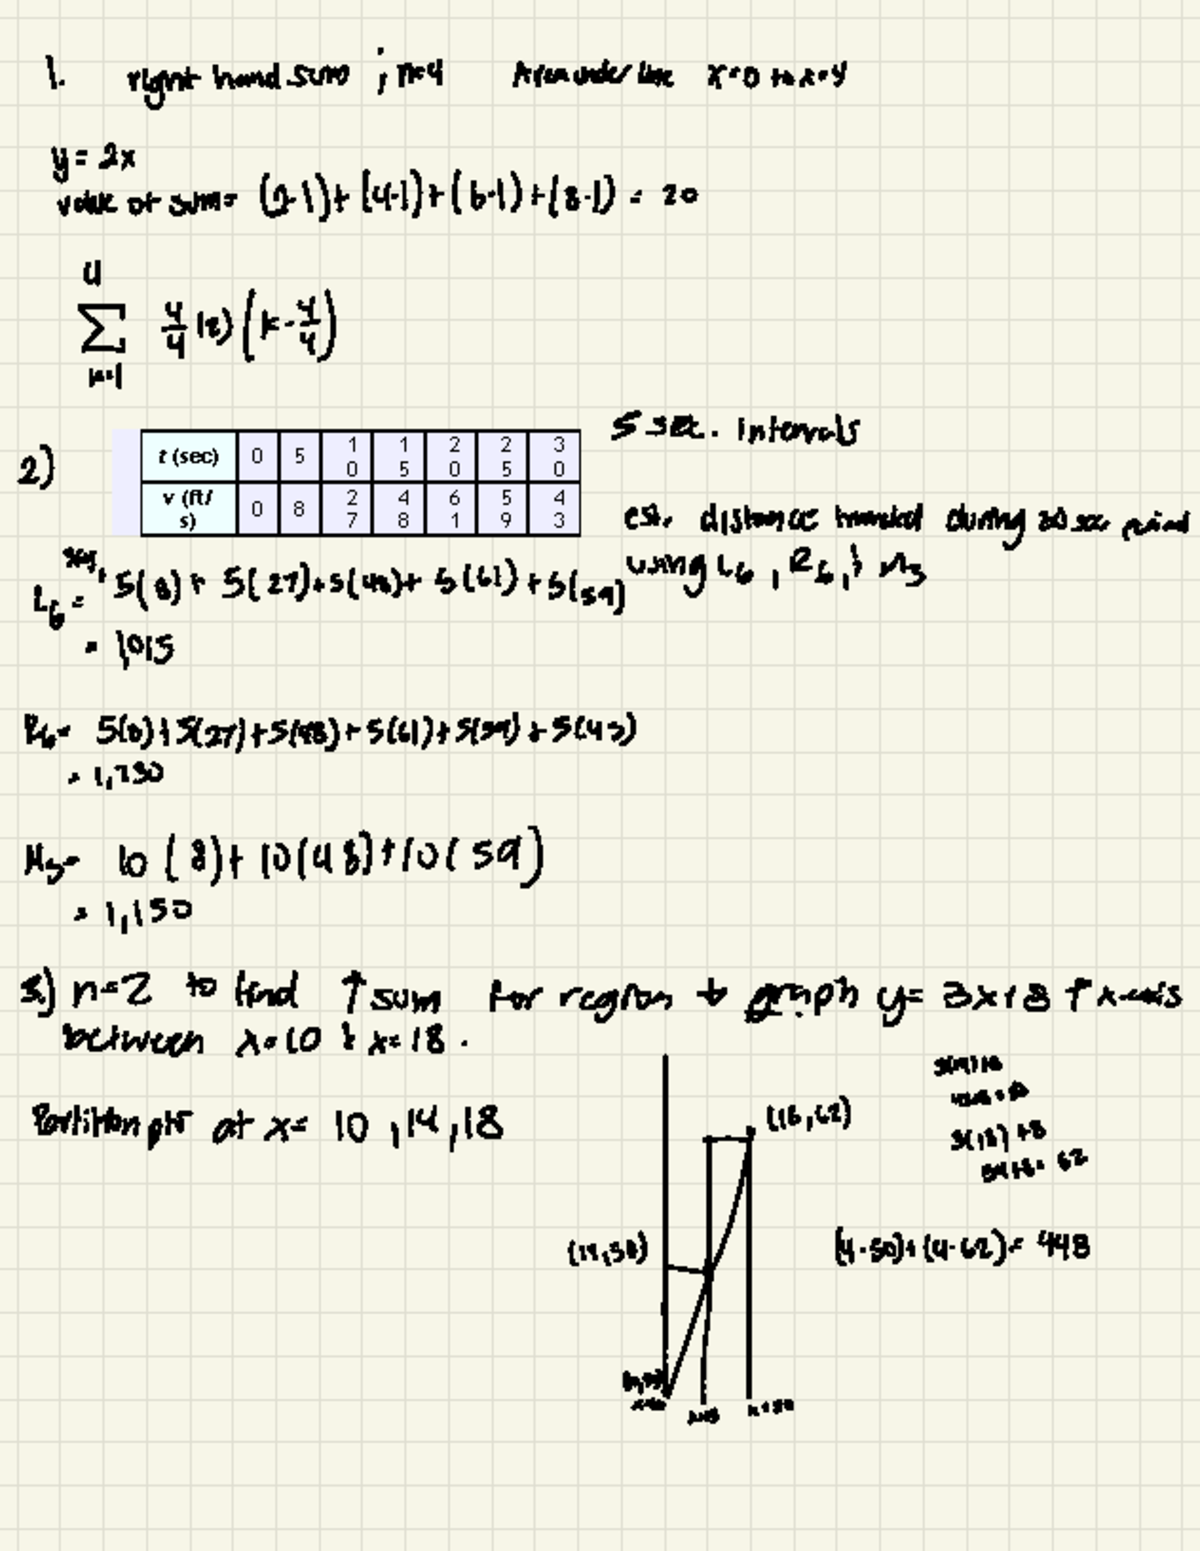 1. right hand sum ; n=4 Area under line x=0 to x=4
y = 2x
value of sum = (2·1)+(4·1)+(6·1)+(8·1) = 20
4
∑ 4/4 (2) (k·4/4)
k=1
2) 5 sec. intervals
t (sec) 0 5 10 15 20 25 30
v (ft/s) 0 8 27 48 61 59 43
est. distance traveled during 30 sec period
using L6, R6, & M3
L6 = 5(8) + 5(27)+5(48)+ 5(61) +5(59)
= 1,015
R6= 5(8)+5(27)+5(48)+5(61)+5(59)+5(43)
= 1,230
M3= 10(8)+10(48)+10(59)
= 1,150
3.) n=2 to find ↑ sum for region ↓ graph y= 3x+8 ↑ x-axis
between x=10 & x=18.
Partition pts at x= 10, 14, 18
(18,62)
3(18) +8
54+8= 62
(14,50)
(4·50)+(4·62)= 448